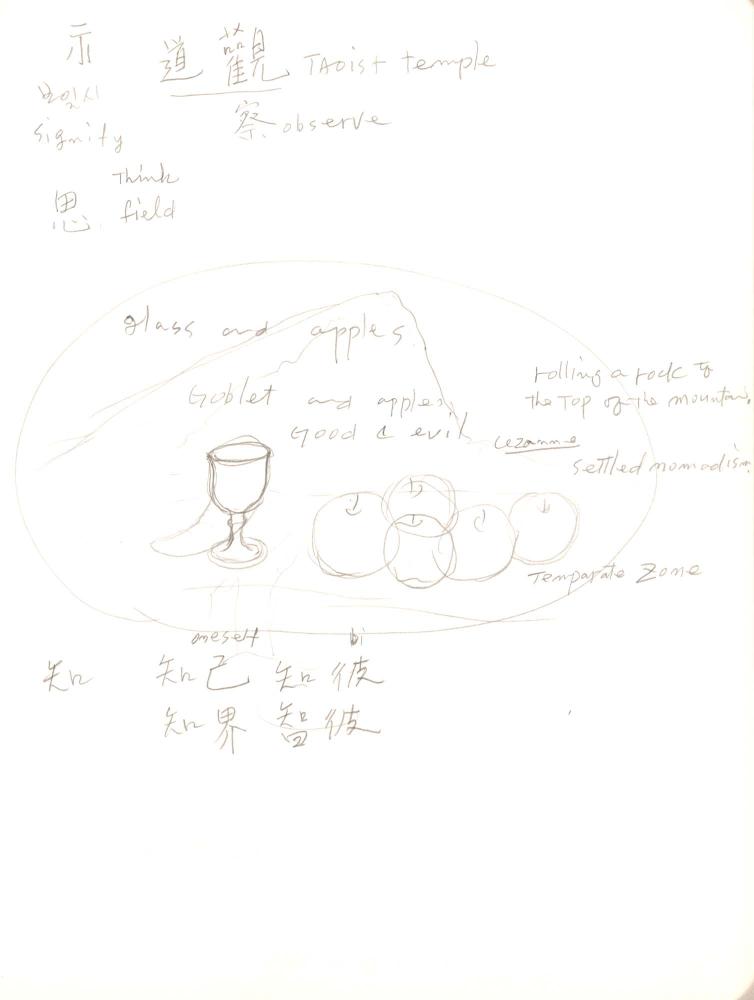 示 道觀 TAOist temple
보일시
signity 察 observe
Think
思. field
glass and apples
rolling a rock to
Goblet and apples the Top of the mountain.
Good & evil cezanne
settled nomadism
Temparate Zone
oneself bi
知 知己 知彼
知界 智彼